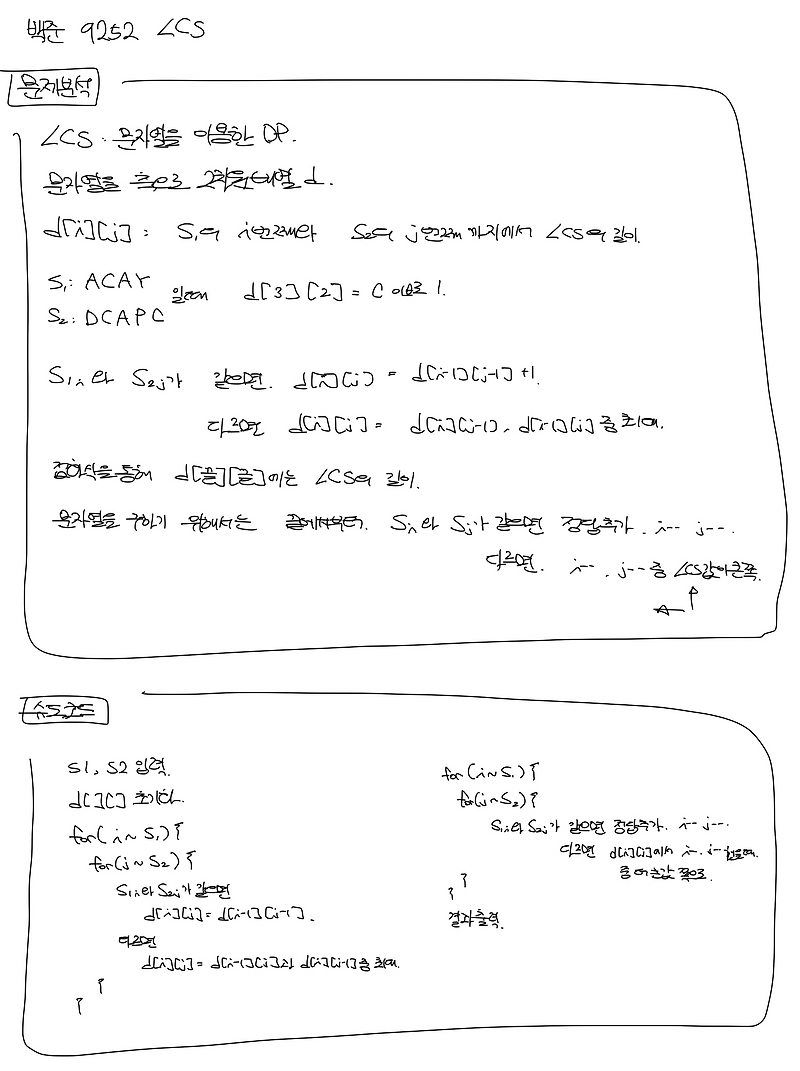 백준 9252 LCS
문제분석
LCS : 문자열을 이용한 DP.
문자열을 축으로 2차원배열 d.
d[i][j] : S₁의 i번째와 S₂의 j번째 까지에서 LCS의 길이.
S₁: ACAY
S₂: DCAPC
일때 d[3][2] = C 이므로 1.
S₁ᵢ와 S₂ⱼ가 같으면. d[i][j] = d[i-1][j-1] +1.
다르면 d[i][j] = d[i][j-1], d[i-1][j] 중 최대.
점화식을 통해 d[끝][끝]에는 LCS의 길이.
문자열을 구하기 위해서는 끝에서부터. Sᵢ와 Sⱼ가 같으면 정답추가. i-- j--.
다르면. i--, j-- 중 LCS값이 큰쪽.
← ↑
슈도코드
S1, S2 입력.
d[][] 초기화.
for( i ~ S₁) {
for(j ~ S₂) {
S₁ᵢ와 S₂ⱼ가 같으면
d[i][j] = d[i-1][j-1].
다르면
d[i][j] = d[i-1][j]와 d[i][j-1] 중 최대.
}
}
for(i ~ S₁) {
for(j ~ S₂) {
S₁ᵢ와 S₂ⱼ가 같으면 정답추가. i-- j--.
다르면 d[i][j]에서 i--, j--
중 더 큰값 쪽으로.
}
}
결과출력.